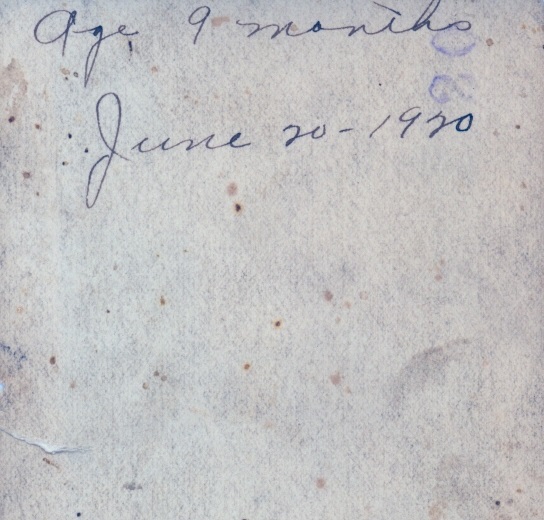 Age 9 months
June 20-1920